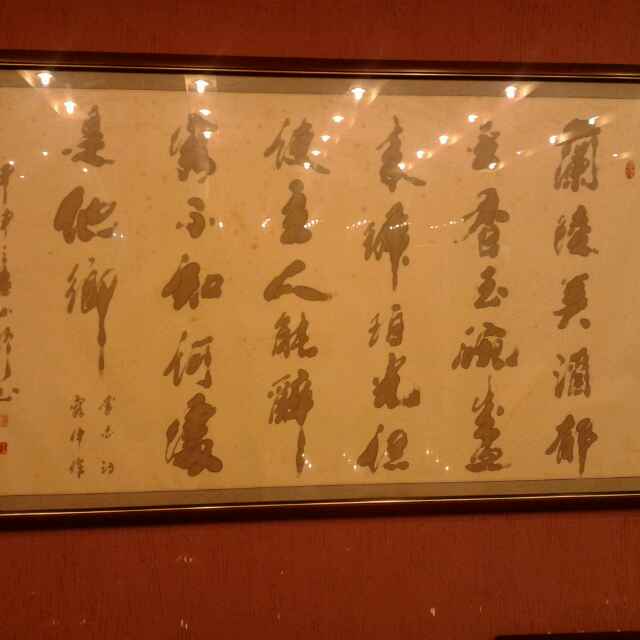 蘭陵美酒郁
金香玉碗盛
来琥珀光但
使主人能醉
客不知何處
是他鄉
李白詩
客中作
甲申